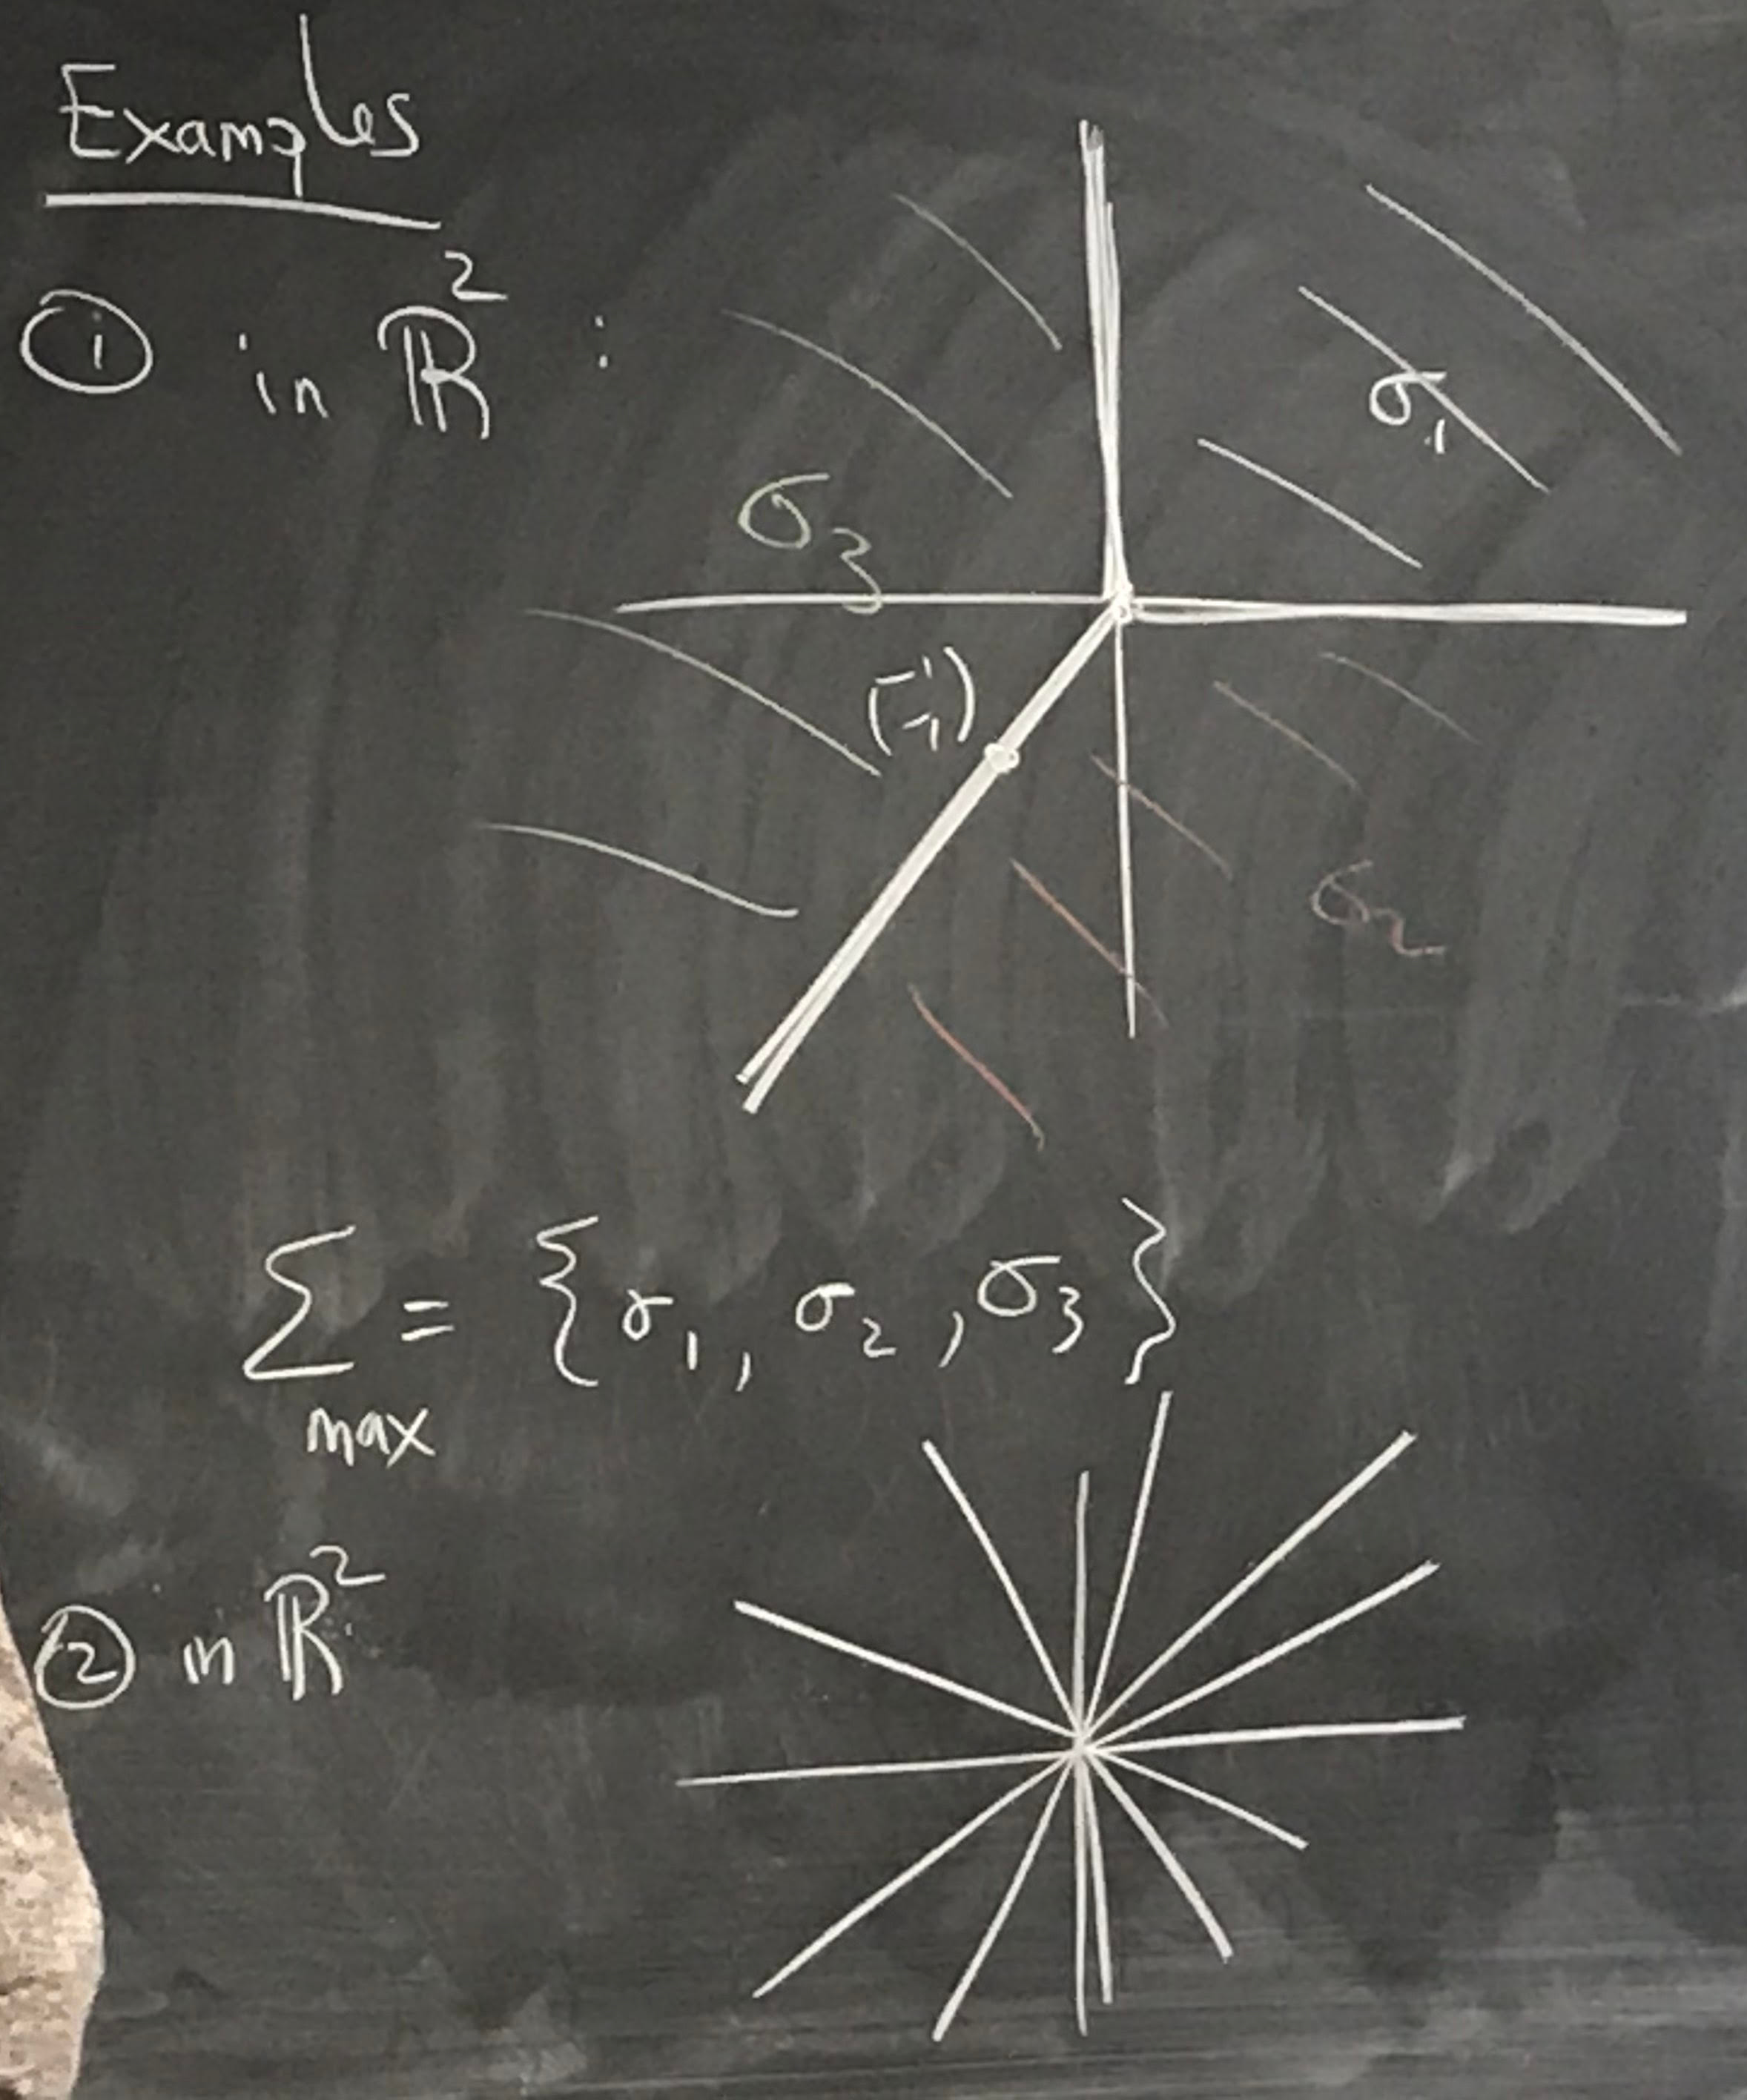 Examples
① in ℝ² :
σ₁
σ₃
(-1 -1)
σ₂
Σ_max = {σ₁, σ₂, σ₃}
② in ℝ²